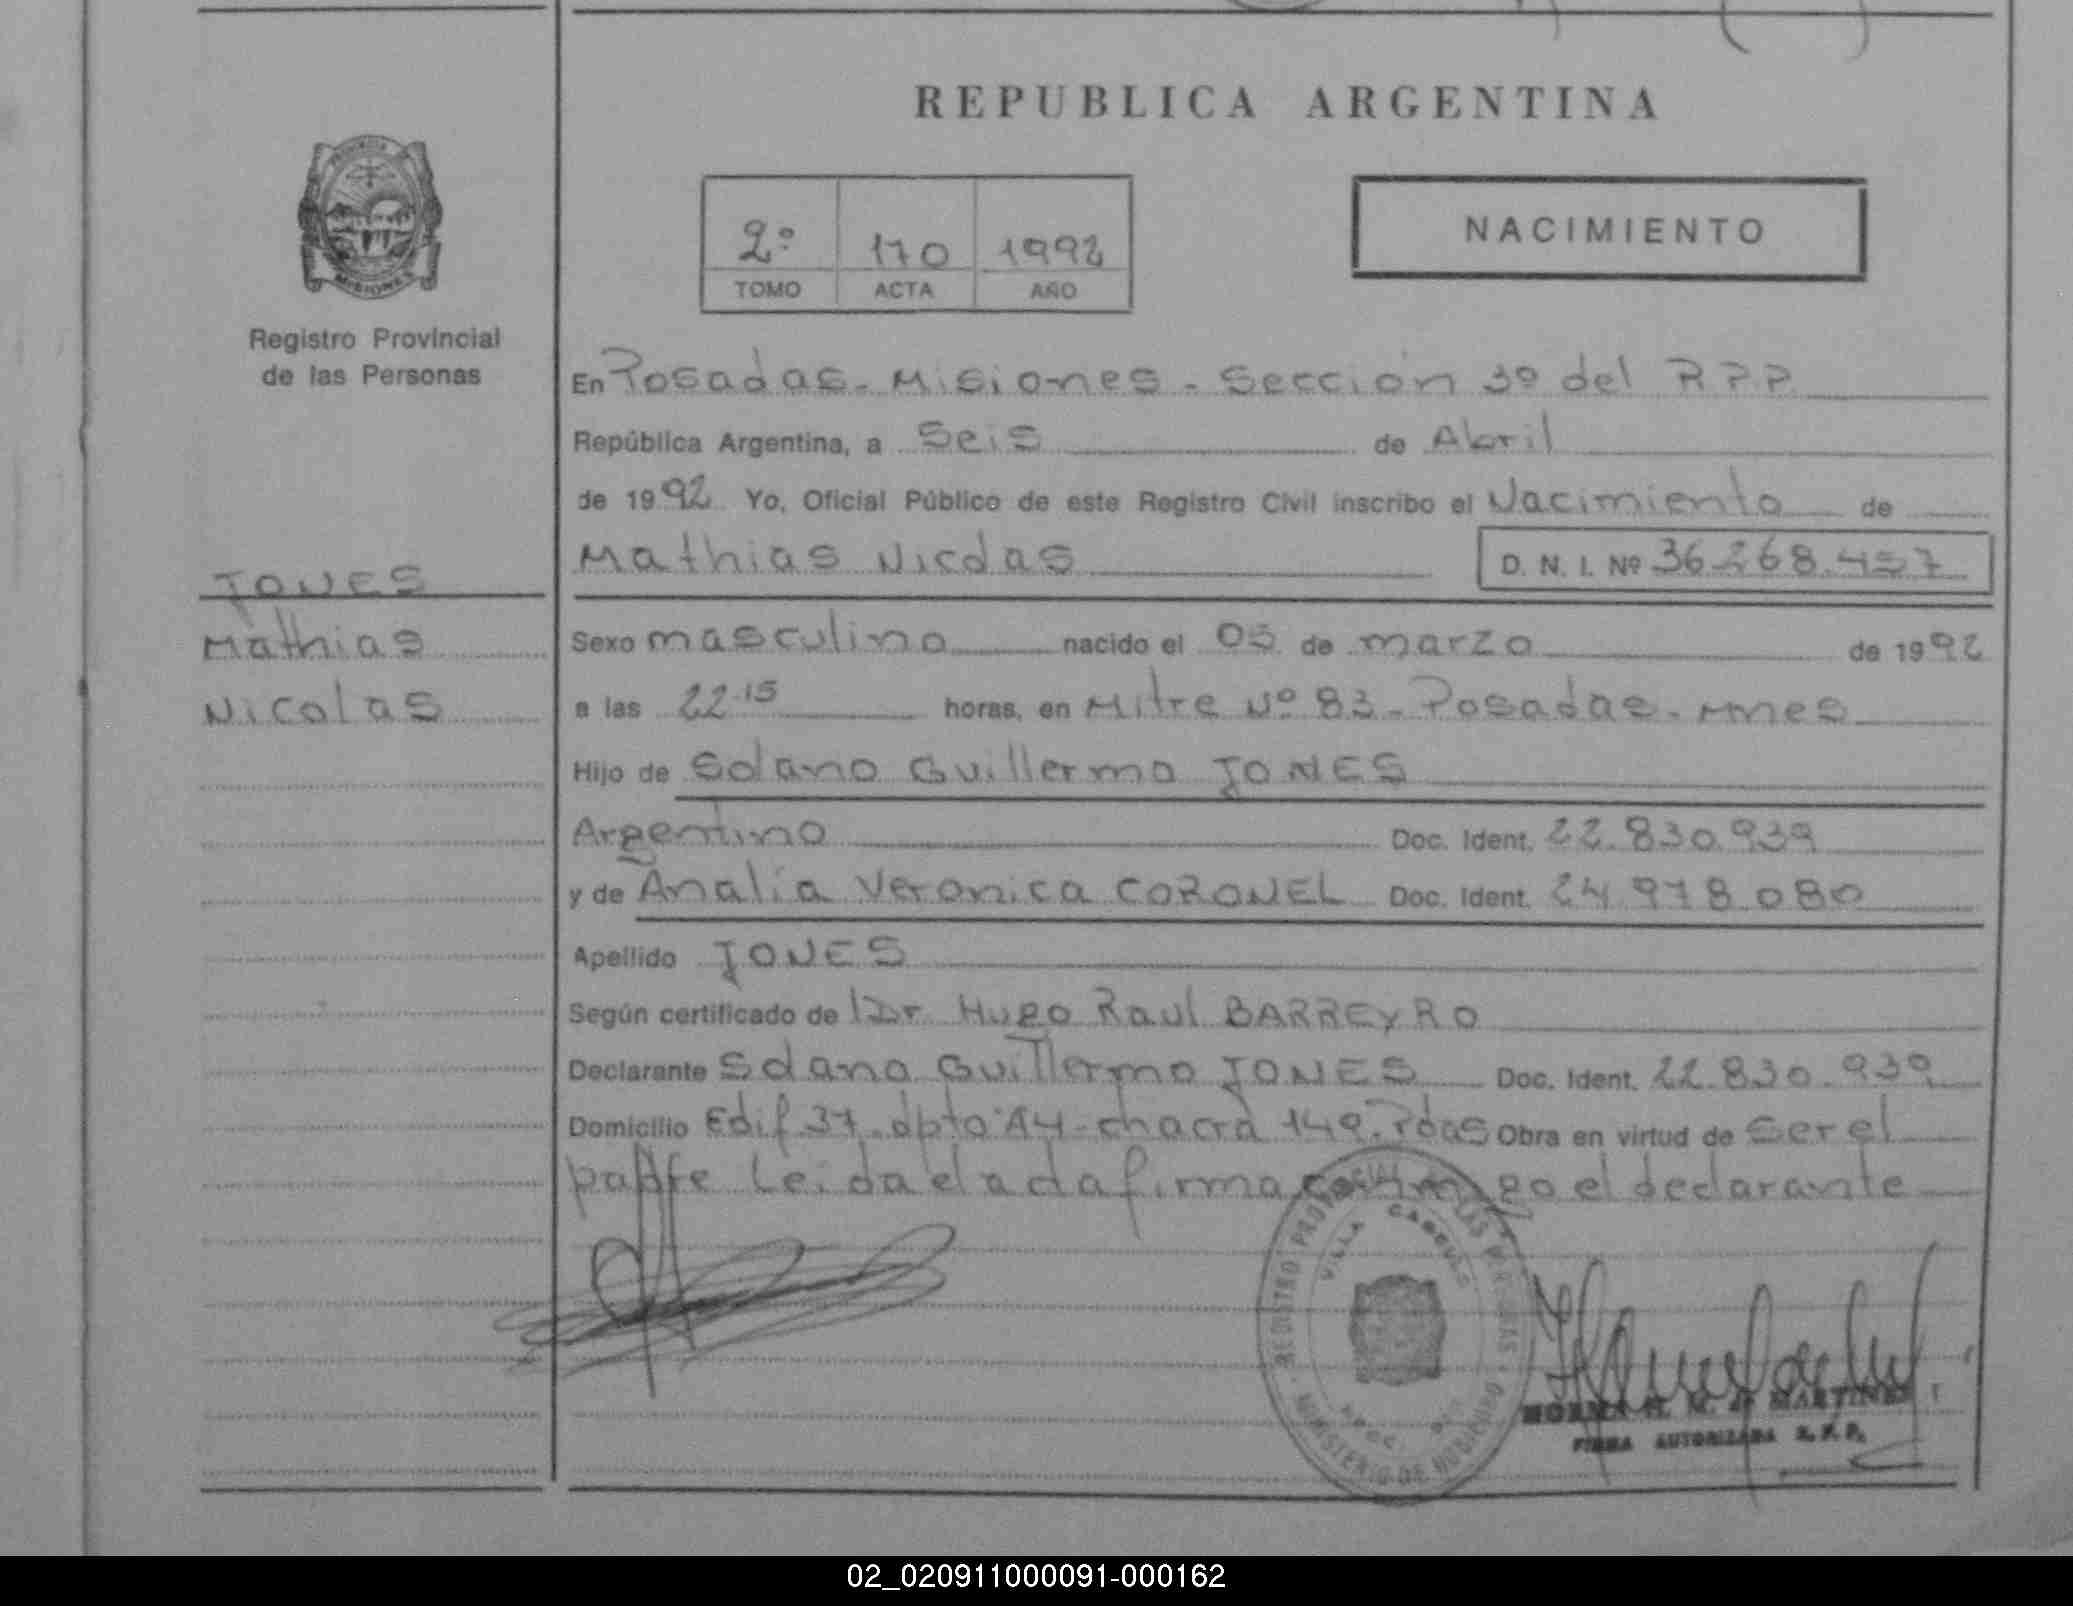 REPUBLICA ARGENTINA
PROVINCIA
MISIONES
Registro Provincial
de las Personas
2º 170 1992
TOMO ACTA AÑO
NACIMIENTO
En Posadas - Misiones - Sección 3º del R.P.P.
República Argentina, a Seis de Abril
de 1992 Yo, Oficial Público de este Registro Civil inscribo el Nacimiento de
Mathias Nicolas D. N. I. Nº 36.268.457
JONES
Mathias
Nicolas
Sexo masculino nacido el 05 de marzo de 1992
a las 22.15 horas, en Mitre Nº 83 - Posadas - Mnes
Hijo de Solano Guillermo JONES
Argentino Doc. Ident. 22.830.939
y de Analía Veronica CORONEL Doc. Ident. 24.978.080
Apellido JONES
Según certificado de Dr. Hugo Raul BARREYRO
Declarante Solano Guillermo JONES Doc. Ident. 22.830.939
Domicilio Edif 37 - dpto A4 - chacra 149 - Pdas Obra en virtud de ser el
padre Leida el acta firma conmigo el declarante
REGISTRO PROVINCIAL DE LAS PERSONAS
VILLA CABELLO
MINISTERIO DE GOBIERNO
NORMA H. M. de MARTINEZ
FIRMA AUTORIZADA R. P. P.
02_020911000091-000162